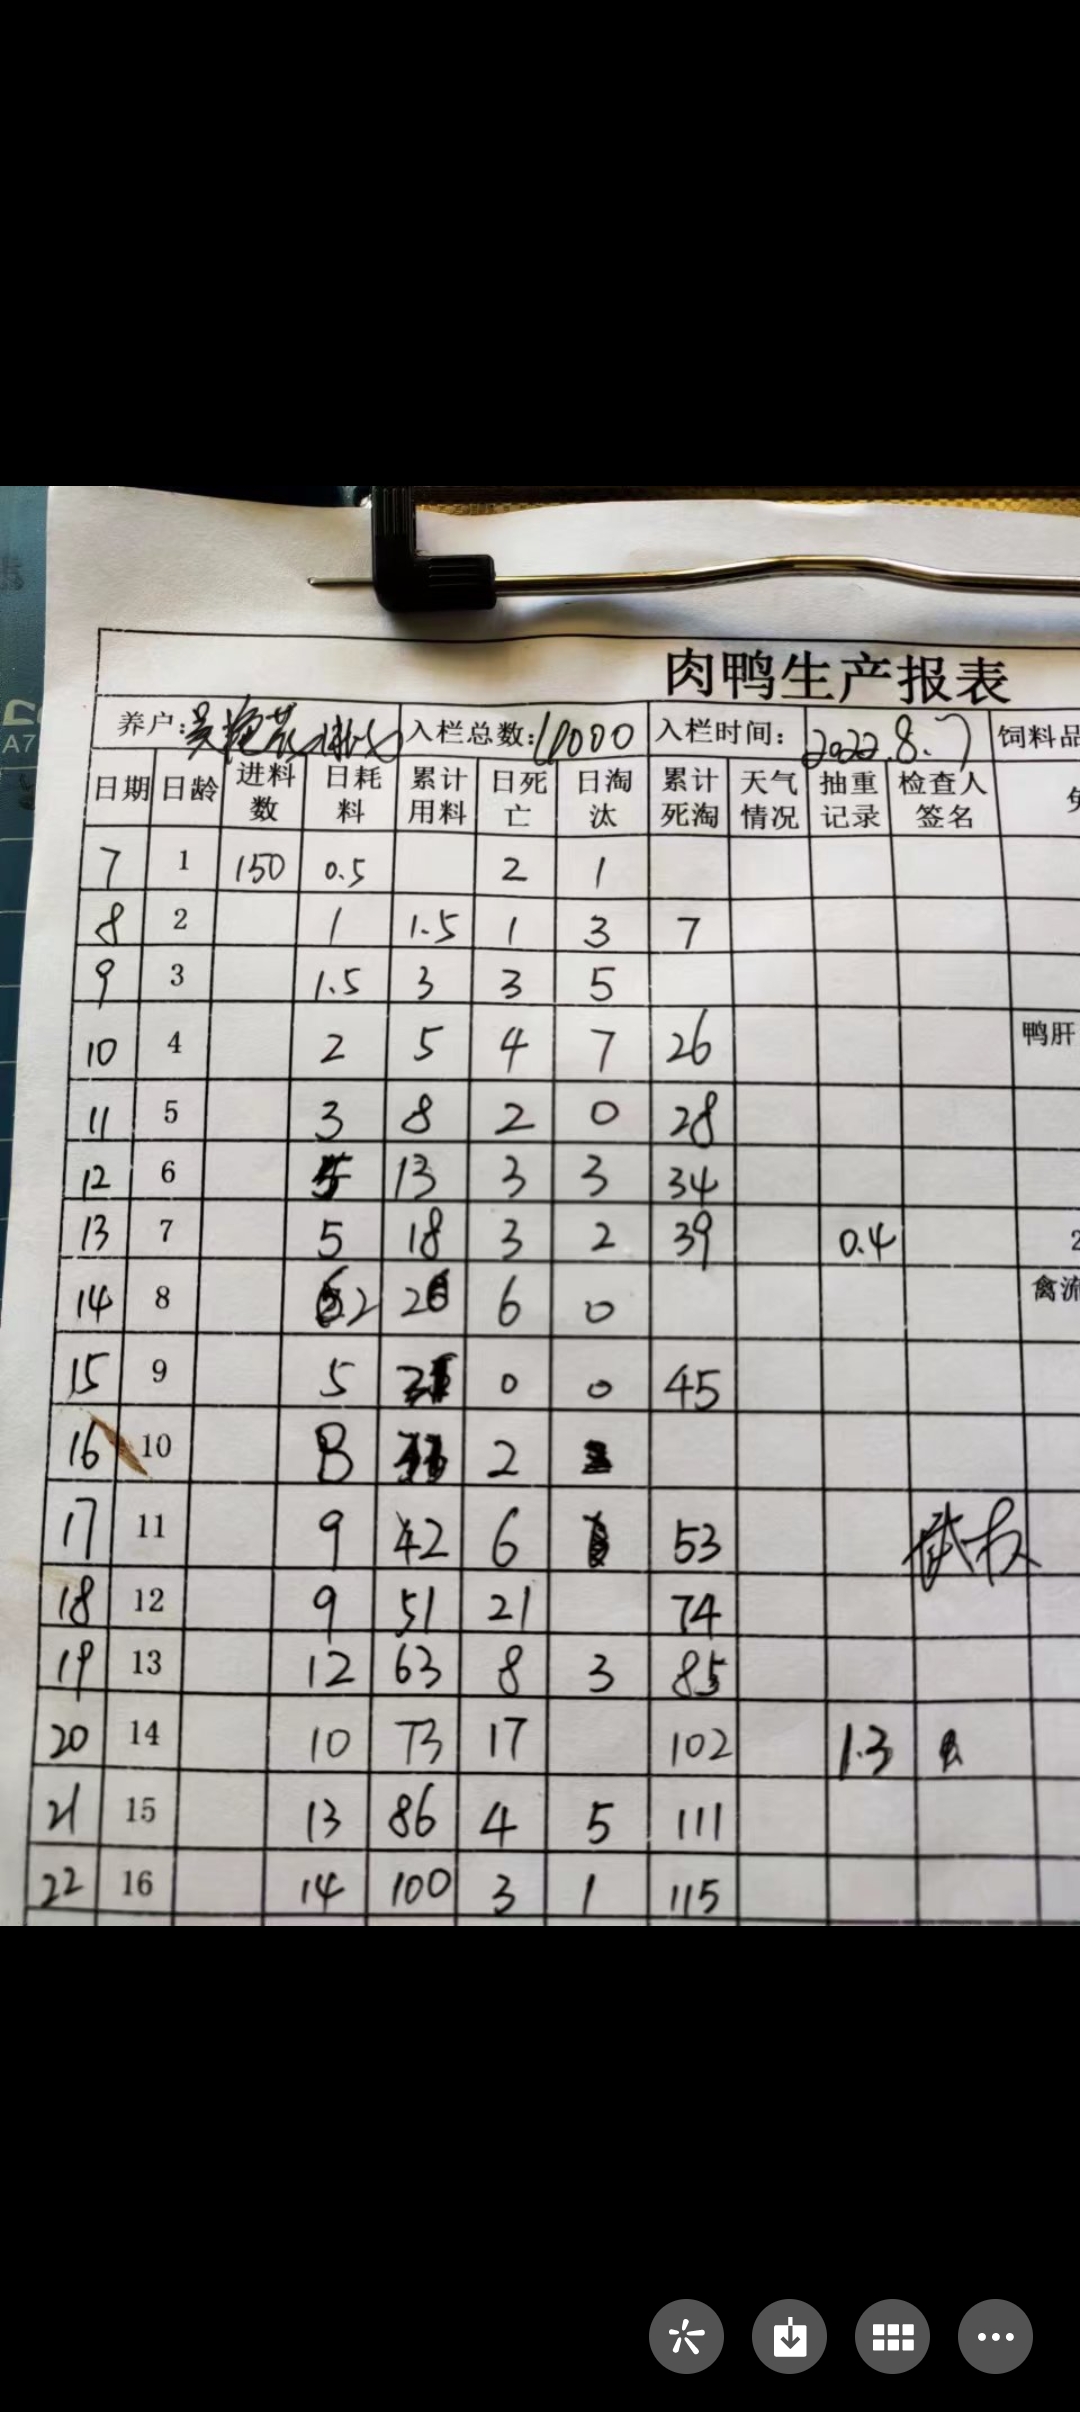 A7
肉鸭生产报表
养户: 入栏总数: 10000 入栏时间: 2022.8.7 饲料品
日期 日龄 进料数 日耗料 累计用料 日死亡 日淘汰 累计死淘 天气情况 抽重记录 检查人签名
7 1 150 0.5 2 1
8 2 1 1.5 1 3 7
9 3 1.5 3 3 5
10 4 2 5 4 7 26 鸭肝
11 5 3 8 2 0 28
12 6 5 13 3 3 34
13 7 5 18 3 2 39 0.4 2
14 8 2 6 0 禽流
15 9 5 0 0 45
16 10 2
17 11 9 42 6 53
18 12 9 51 21 74
19 13 12 63 8 3 85
20 14 10 73 17 102 1.3
21 15 13 86 4 5 111
22 16 14 100 3 1 115